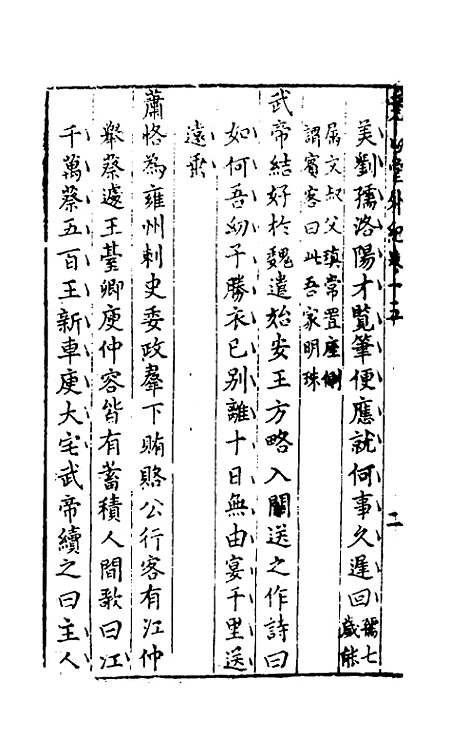 堯山堂外紀卷十五
二
美劉孺洛陽才覽筆便應就何事久遲回孺七
歲能
屬文叔父瑱常置座側
謂賓客曰此吾家明珠
武帝結好於魏遣始安王方略入關送之作詩曰
如何吾幼子勝衣已别離十日無由宴千里送
遠垂
蕭恪為雍州刺史委政羣下賄賂公行客有江仲
舉蔡薳王臺卿庾仲容皆有蓄積人間歌曰江
千萬蔡五百王新車庾大宅武帝續之曰主人